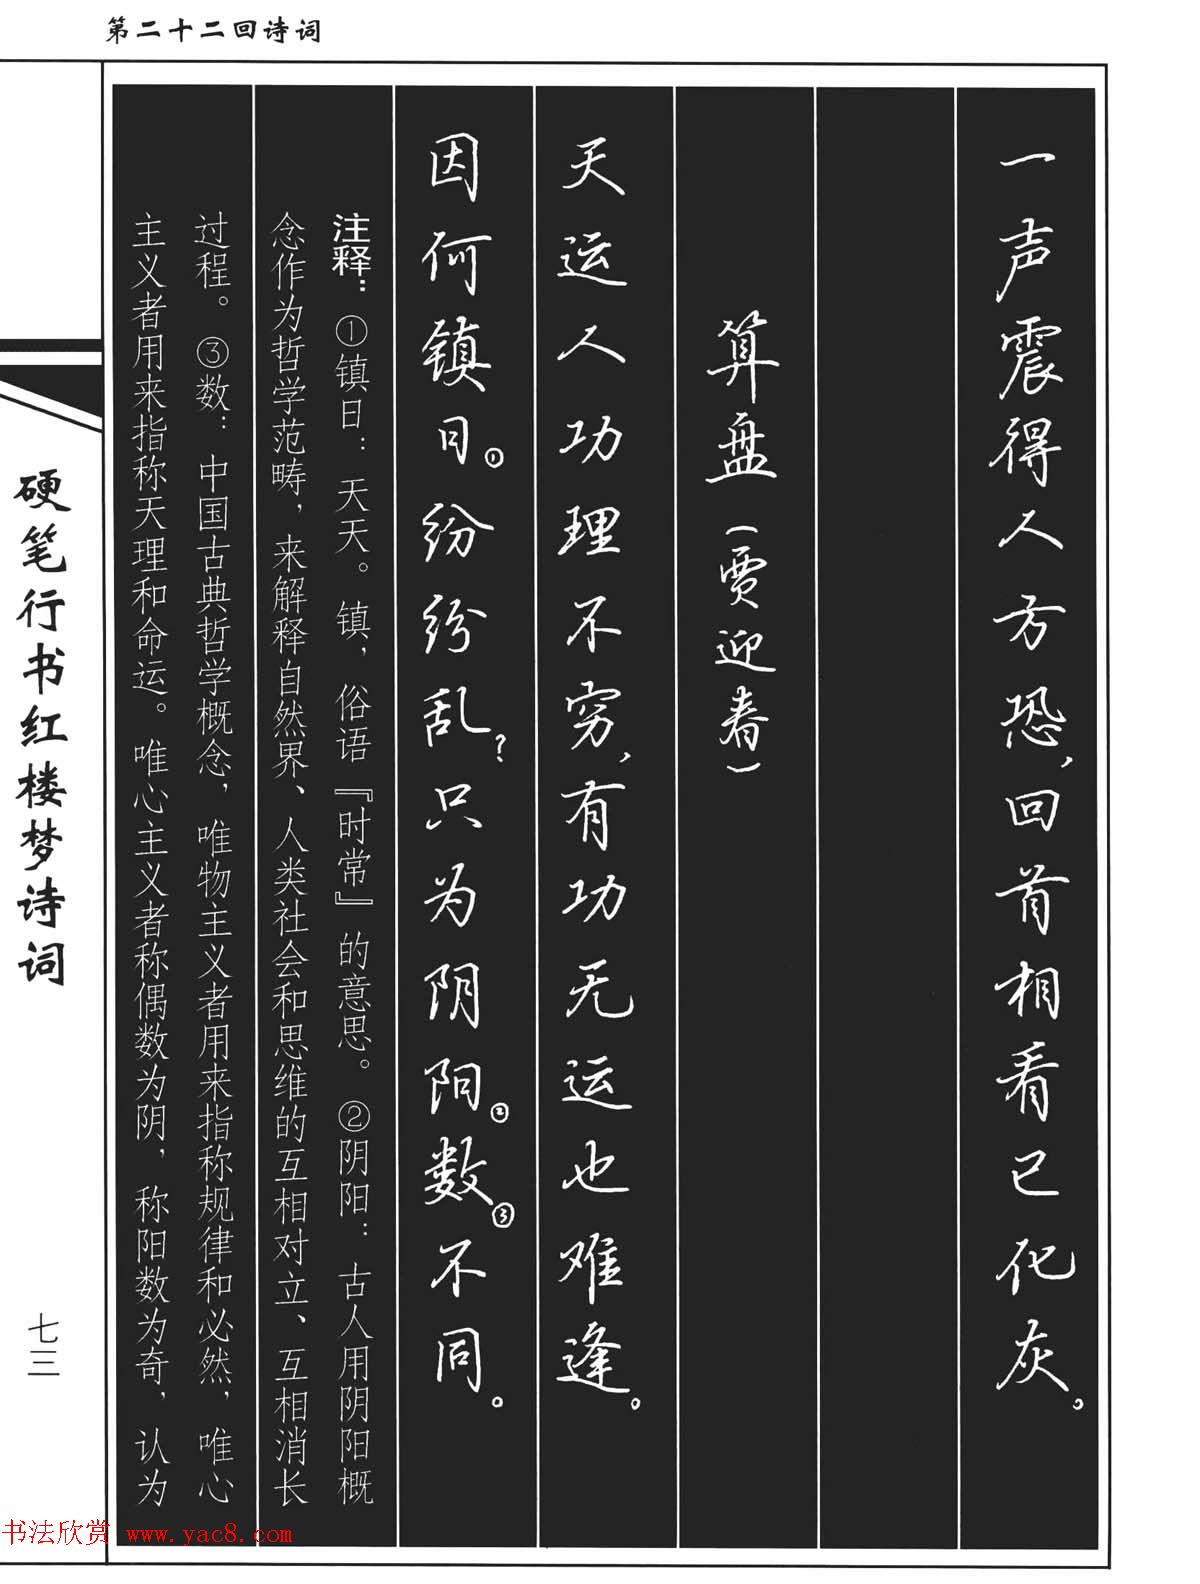 第二十二回诗词
一声震得人方恐，回首相看已化灰。
算盘（贾迎春）
天运人功理不穷，有功无运也难逢。
因何镇日①纷纷乱？只为阴阳②数③不同。
注释：①镇日：天天。镇，俗语『时常』的意思。②阴阳：古人用阴阳概
念作为哲学范畴，来解释自然界、人类社会和思维的互相对立、互相消长
过程。③数：中国古典哲学概念，唯物主义者用来指称规律和必然，唯心
主义者用来指称天理和命运。唯心主义者称偶数为阴，称阳数为奇，认为
硬笔行书红楼梦诗词
七三
书法欣赏 www.yac8.com